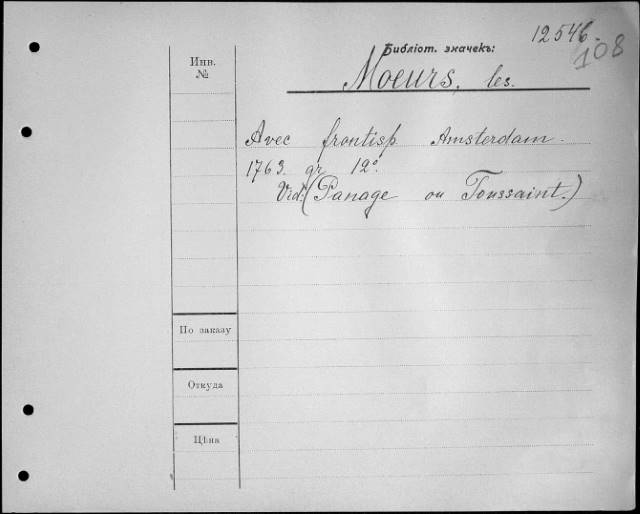 12546.
108
Библіот. значекъ:
Инв.
№
Moeurs, les.
Avec frontisp Amsterdam.
1763. gr 12°.
Vid: (Panage ou Toussaint.)
По заказу
Откуда
Цѣна